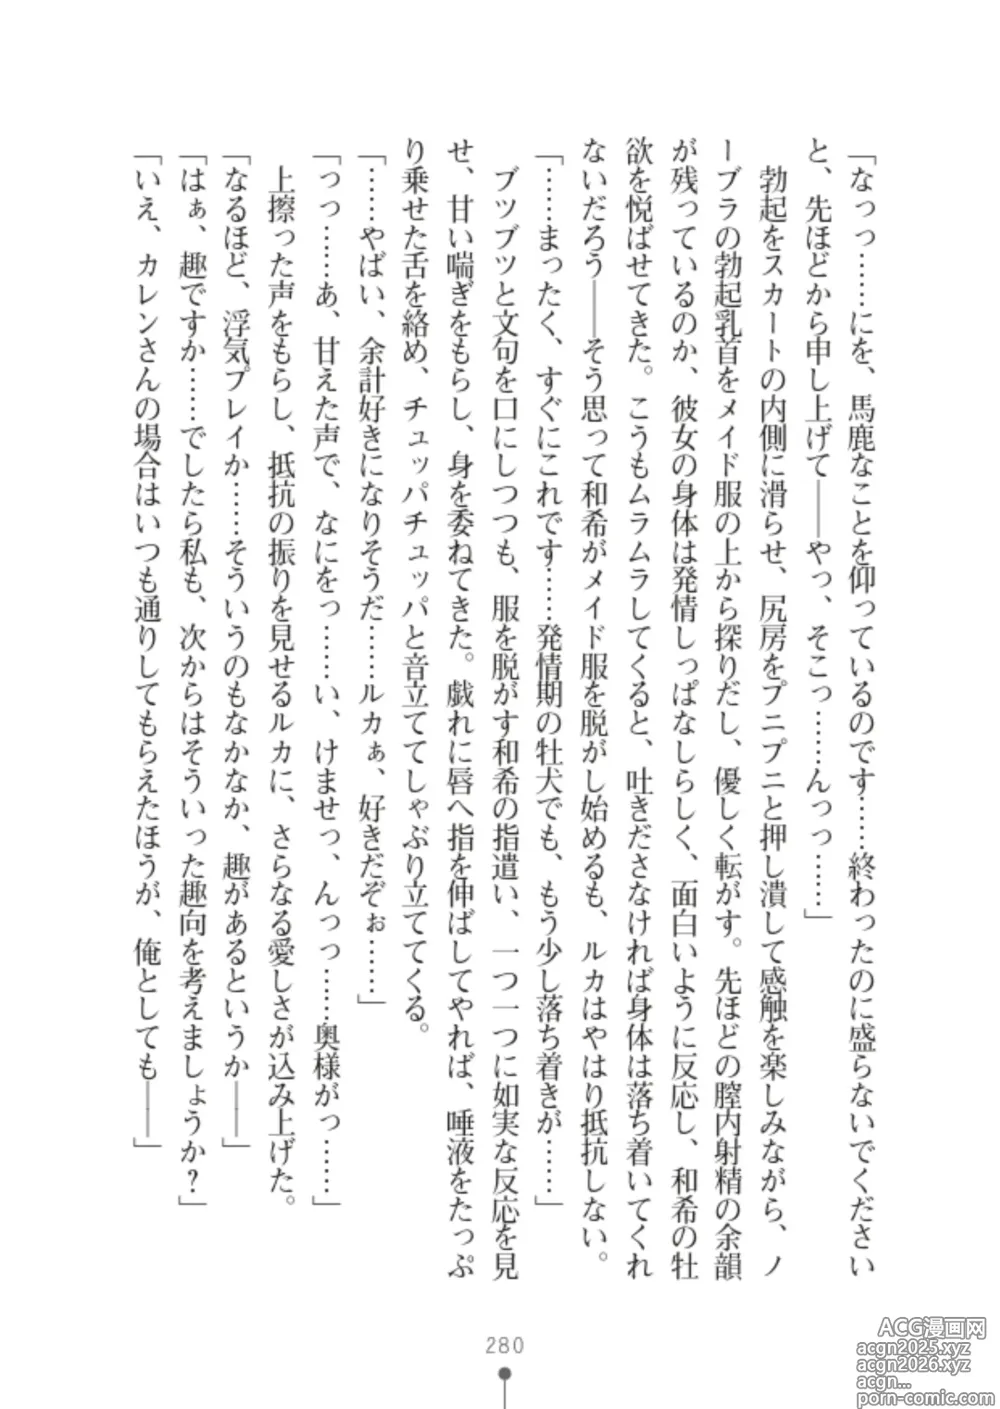 「なっっ……にを、馬鹿なことを仰っているのです……終わったのに盛らないでください
と、先ほどから申し上げて――やっ、そこっ……んっっ……」
　勃起をスカートの内側に滑らせ、尻房をプニプニと押し潰して感触を楽しみながら、ノ
ーブラの勃起乳首をメイド服の上から探りだし、優しく転がす。先ほどの膣内射精の余韻
が残っているのか、彼女の身体は発情しっぱなしらしく、面白いように反応し、和希の牡
欲を悦ばせてきた。こうもムラムラしてくると、吐きださなければ身体は落ち着いてくれ
ないだろう――そう思って和希がメイド服を脱がし始めるも、ルカはやはり抵抗しない。
「……まったく、すぐにこれです……発情期の牡犬でも、もう少し落ち着きが……」
　ブツブツと文句を口にしつつも、服を脱がす和希の指遣い、一つ一つに如実な反応を見
せ、甘い喘ぎをもらし、身を委ねてきた。戯れに唇へ指を伸ばしてやれば、唾液をたっぷ
り乗せた舌を絡め、チュッパチュッパと音立ててしゃぶり立ててくる。
「……やばい、余計好きになりそうだ……ルカぁ、好きだぞぉ……」
「っっ……あ、甘えた声で、なにをっ……い、けませっ、んっっ……奥様がっ……」
　上擦った声をもらし、抵抗の振りを見せるルカに、さらなる愛しさが込み上げた。
「なるほど、浮気プレイか……そういうのもなかなか、趣があるというか――」
「はぁ、趣ですか……でしたら私も、次からはそういった趣向を考えましょうか?」
「いえ、カレンさんの場合はいつも通りしてもらえたほうが、俺としても――」
280
ACG漫画网
acgn2025.xyz
acgn2026.xyz
acgn...
porn-comic.com